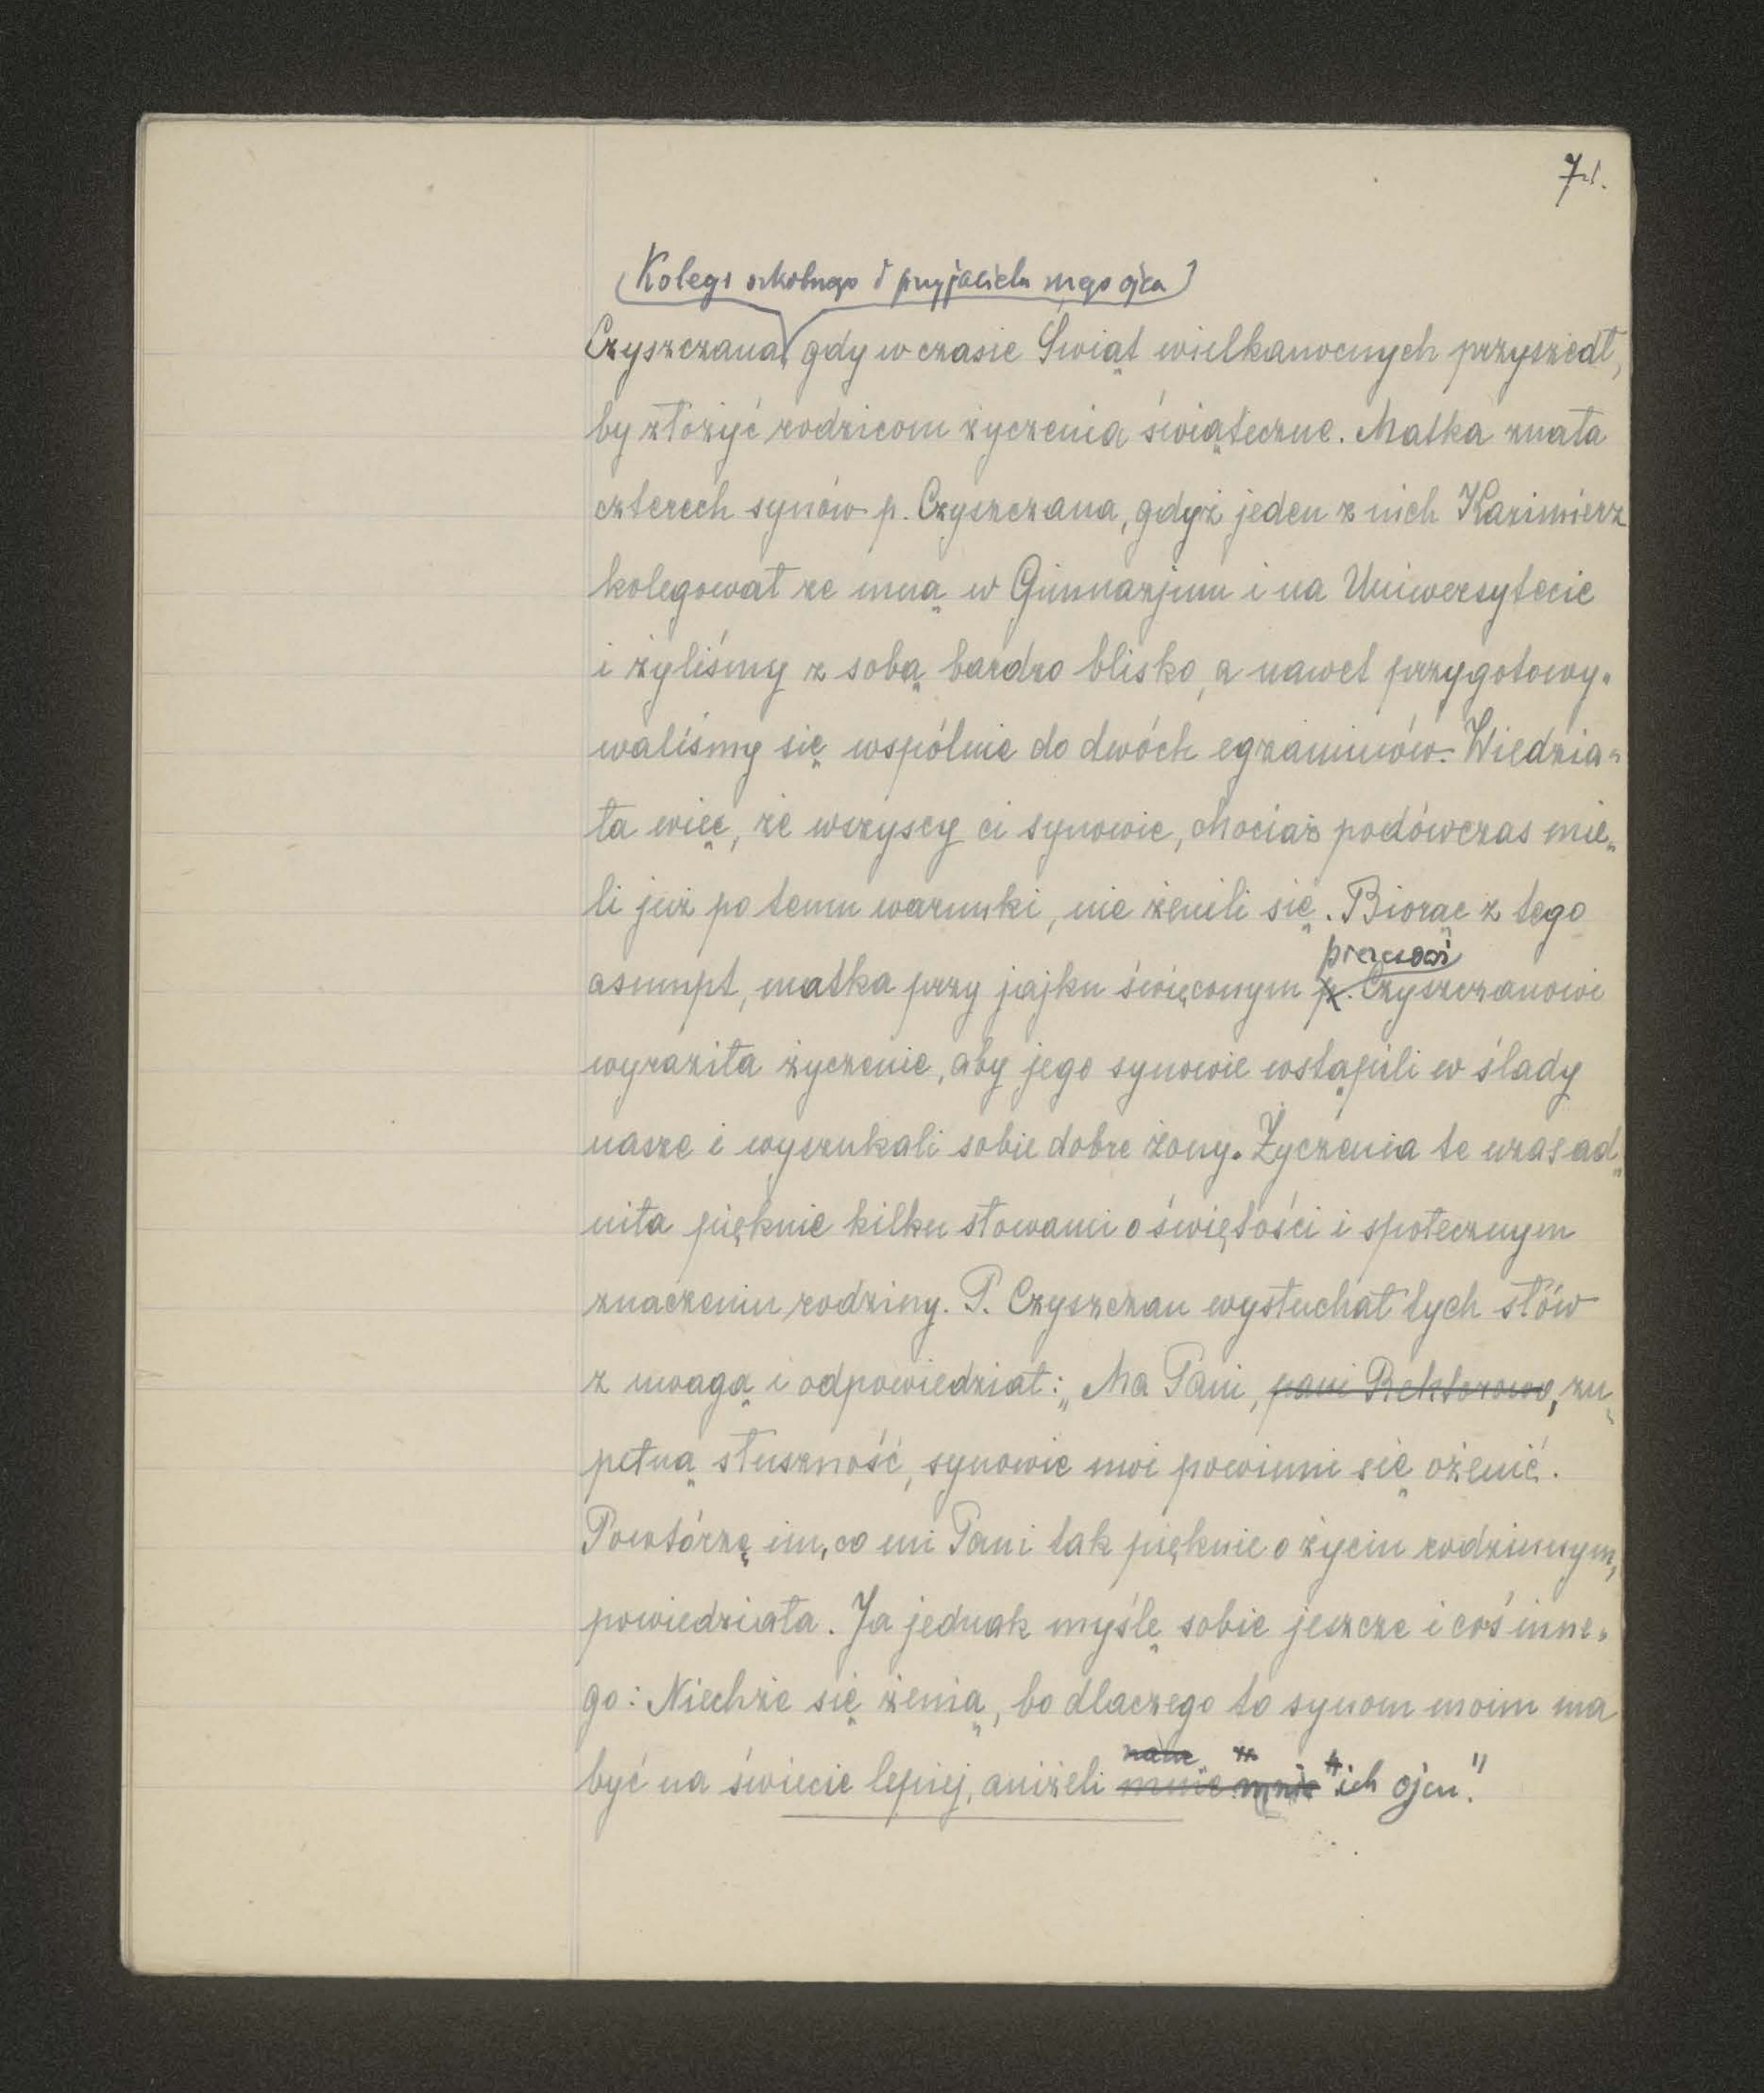 71.
(Kolegi szkolnego i przyjaciela mego ojca)
Czyszczana gdy w czasie Świąt wielkanocnych przyszedł,
by złożyć rodzicom życzenia świąteczne. Matka znała
czterech synów p. Czyszczana, gdyż jeden z nich Kazimierz
kolegował ze mną w Gimnazjum i na Uniwersytecie
i żyliśmy z sobą bardzo blisko, a nawet przygotowy-
waliśmy się wspólnie do dwóch egzaminów. Wiedzia-
ła więc, że wszyscy ci synowie, chociaż podówczas mie-
li już po temu warunki, nie żenili się. Biorąc z tego
prezesowi
asumpt, matka przy jajku święconym p. Czyszczanowi
wyraziła życzenie, aby jego synowie wstąpili w ślady
nasze i wyszukali sobie dobre żony. Życzenia te uzasad-
niła pięknie kilku słowami o świętości i społecznym
znaczeniu rodziny. P. Czyszczan wysłuchał tych słów
z uwagą i odpowiedział: „Ma Pani, pani Rektorowo, zu-
pełną słuszność, synowie moi powinni się ożenić.
Powtórzę im, co mi Pani tak pięknie o życiu rodzinnym,
powiedziała. Ja jednak myślę sobie jeszcze i coś inne-
go: Niechże się żenią, bo dlaczego to synom moim ma
być na świecie lepiej, aniżeli mnie mnie ich ojcu."